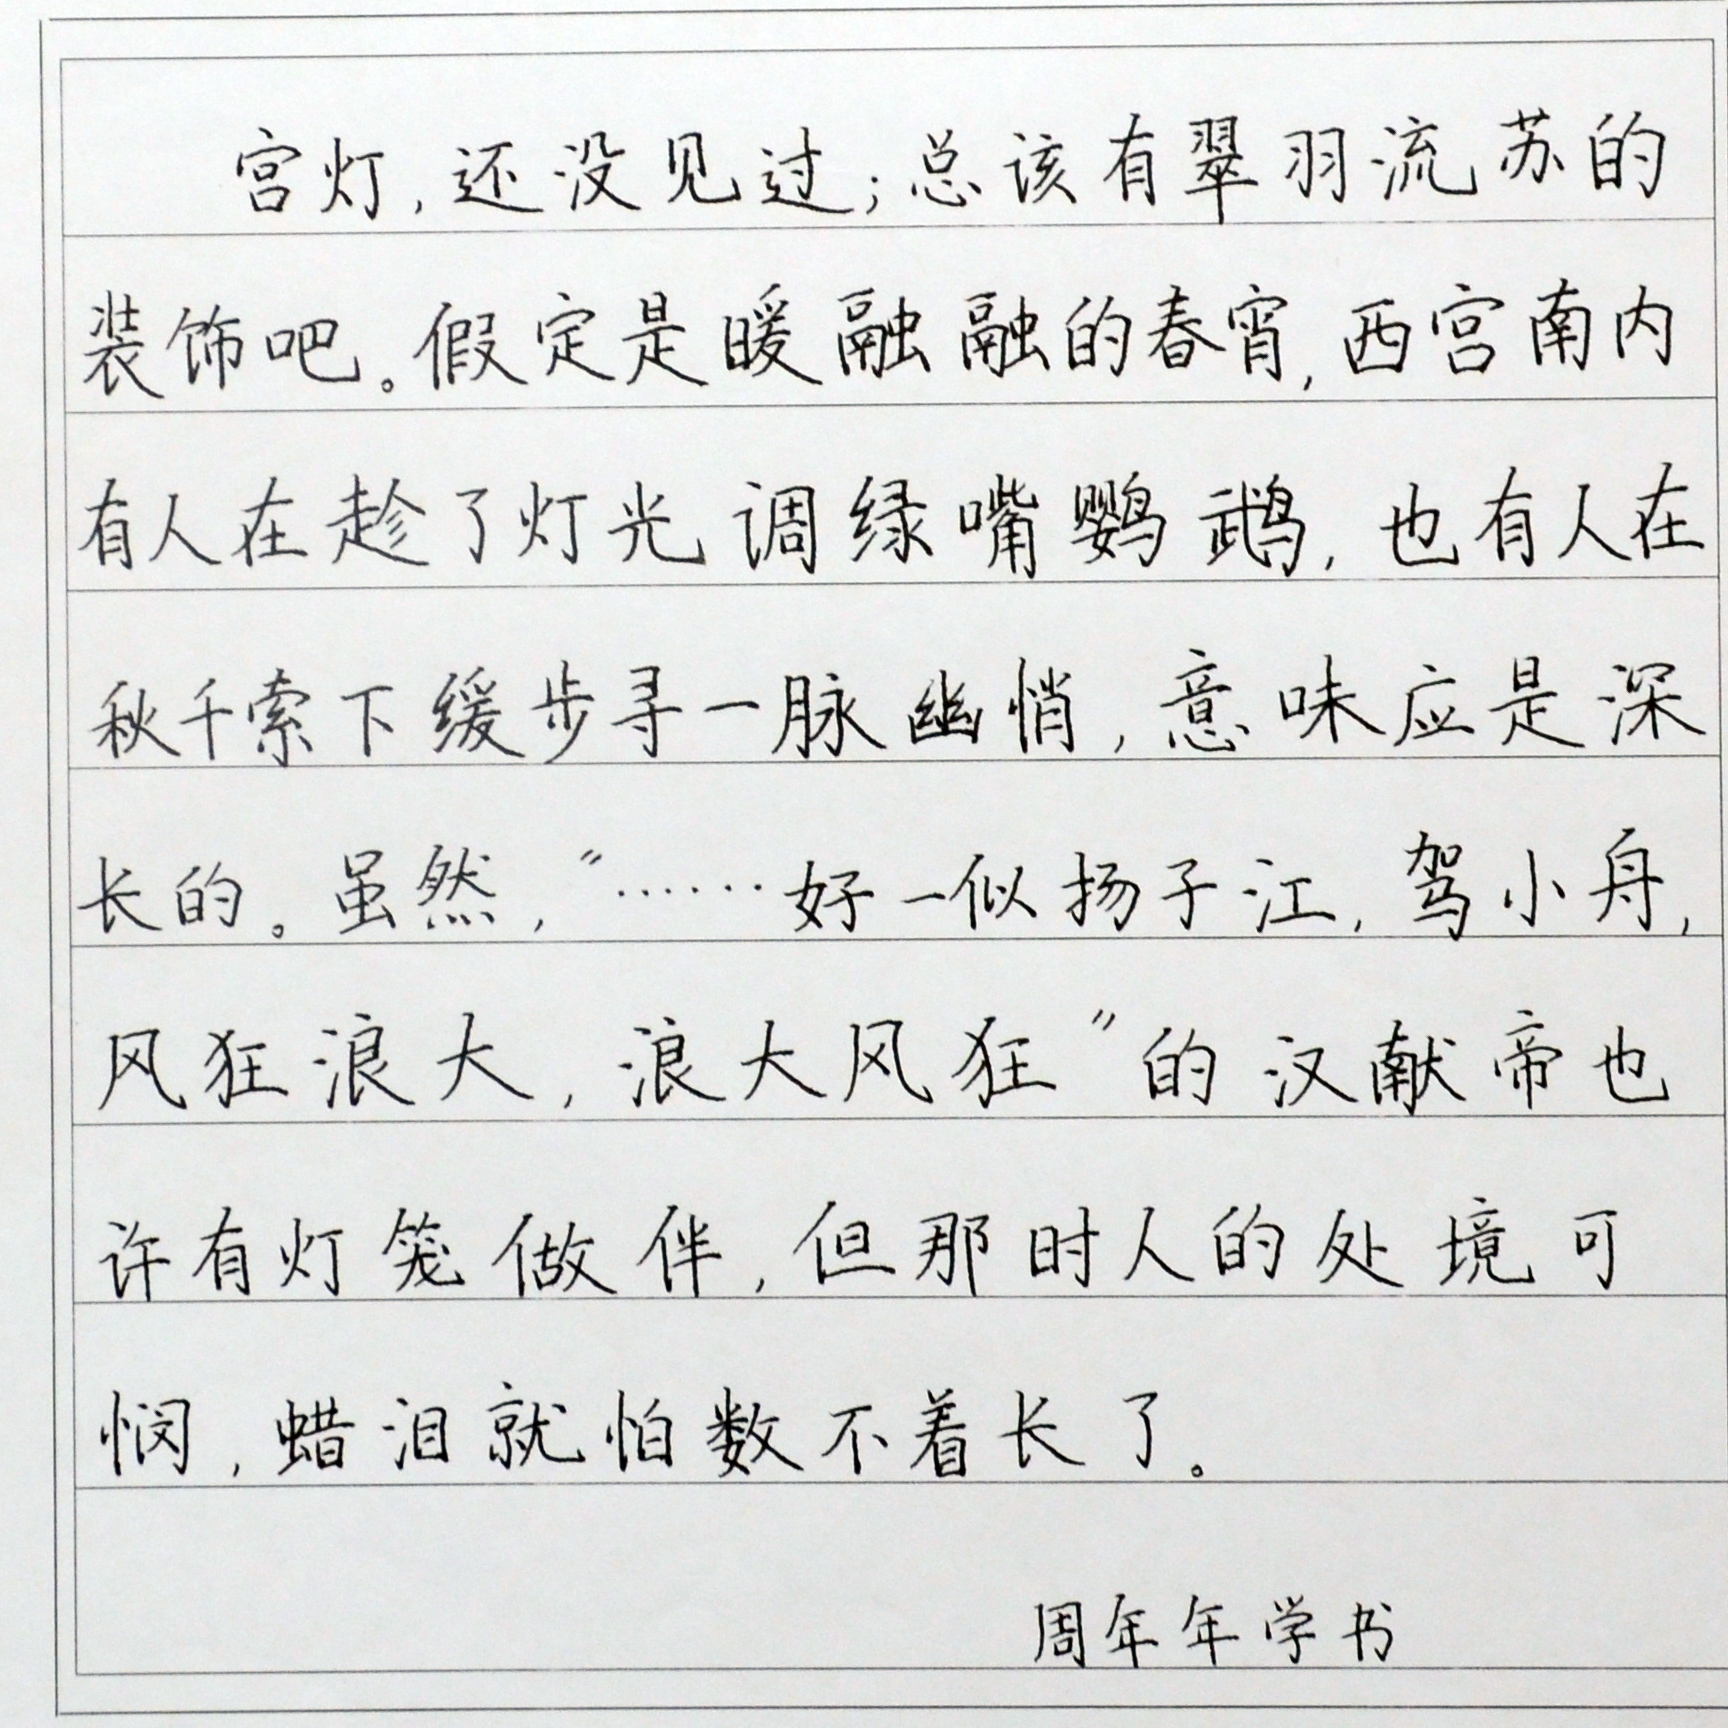 宫灯，还没见过；总该有翠羽流苏的
装饰吧。假定是暖融融的春宵，西宫南内
有人在趁了灯光调绿嘴鹦鹉，也有人在
秋千索下缓步寻一脉幽悄，意味应是深
长的。虽然，“……好一似扬子江，驾小舟，
风狂浪大，浪大风狂”的汉献帝也
许有灯笼做伴，但那时人的处境可
悯，蜡泪就怕数不着长了。
周年年学书